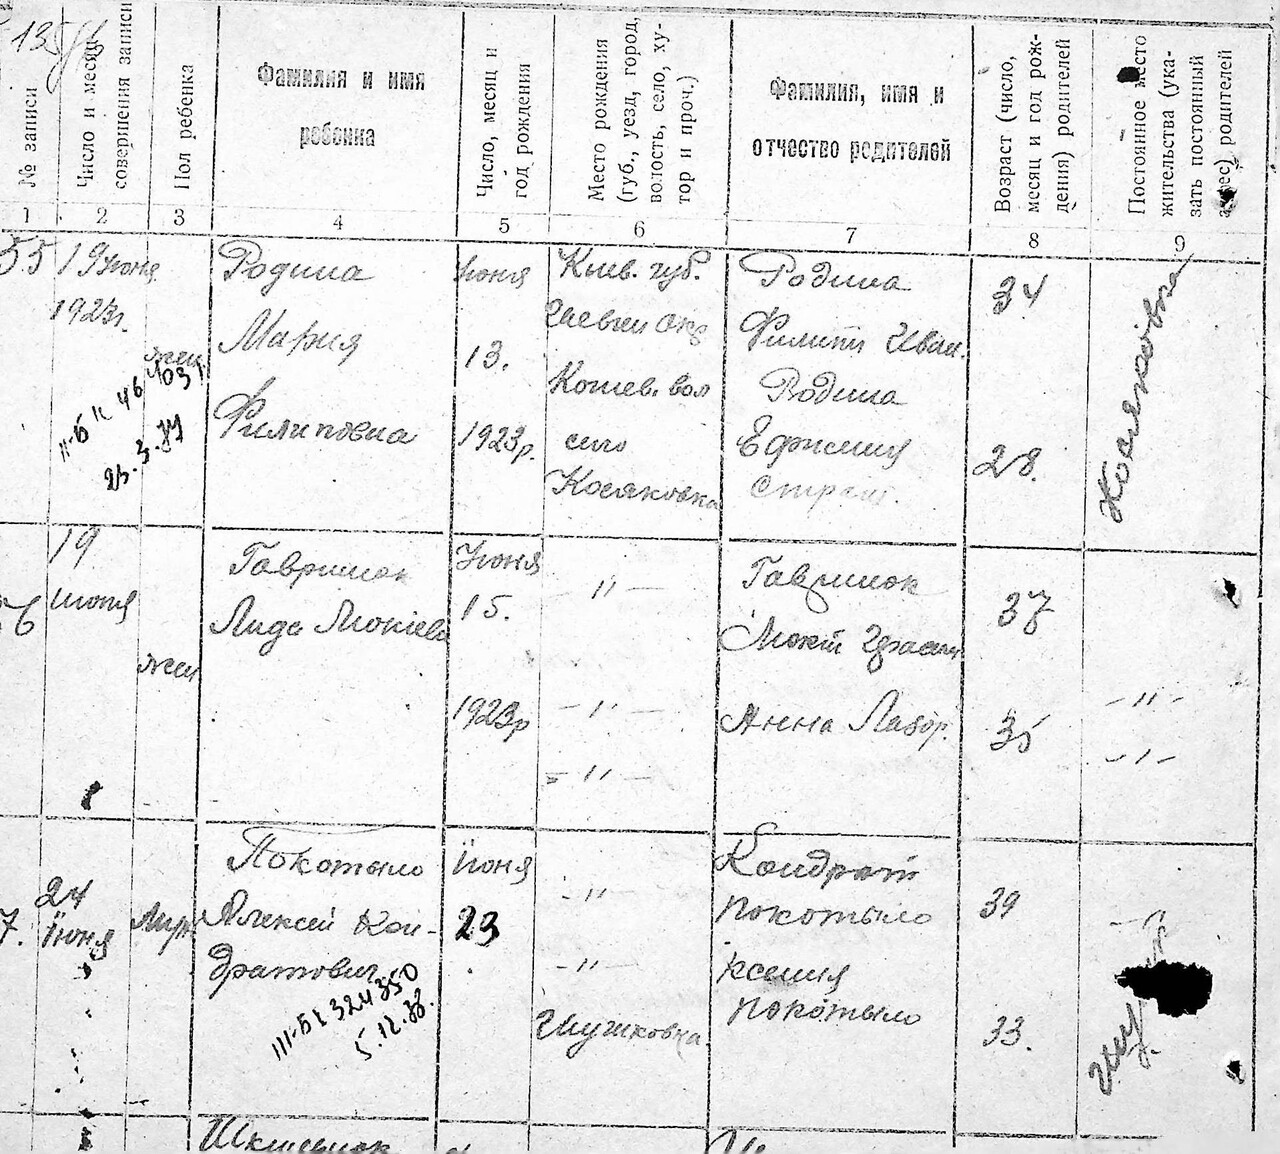 № записи
Число и месяц
совершения записи
Пол ребенка
Фамилия и имя
ребенка
Число, месяц и
год рождения
Место рождения
(губ., уезд, город,
волость, село, ху-
тор и проч.)
Фамилия, имя и
отчество родителей
Возраст (число,
месяц и год рож-
дения) родителей
Постоянное место
жительства (ука-
зать постоянный
адрес) родителей
1 2 3 4 5 6 7 8 9
55
19 июня
1923г.
жен
Родина
Мария
Филиповна
июня
13.
1923р.
Киев. губ.
Кошев. вол
село
Косяковка
Родина
Филипп Иван.
Родина
Ефросиния
34
28.
Косяковка
23.3.77
19
июня
жен
Гавринок
Лида
Июня
15.
1923р
— " —
— " —
— " —
Гавринок
Анна Лавор.
37
35
— " —
— " —
7.
24
Июня
Покотыло
Алексей Кон-
дратович
III-БК 324350
5.12.88.
Июня
23
— " —
— " —
Кондрат
Покотыло
Ксения
Покотыло
39
33.
— " —